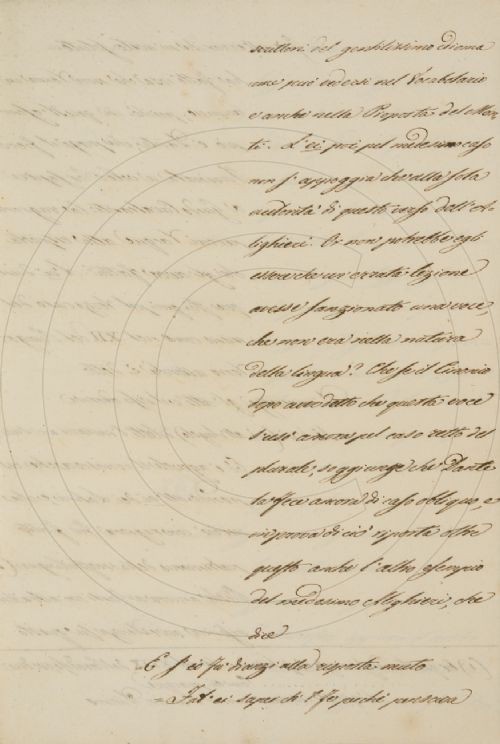 scrittori del gentilissimo idioma
come può vedersi nel Vocabolario
e anche nella Proposta del Mon,
ti. L'ei poi pel medesimo caso
non s'appoggia che alla sola
autorità di questo verso dell'Al
lighieri. Or non potrebbe egli
essere che un'errata lezione
avesse sanzionato una voce,
che non era nella natura
della lingua? Che se il
dopo aver detto che questa voce
s'usò ancora pel caso retto del
plurale, soggiunge che Dante
la fece ancora di caso obliquo, e
in prova di ciò riporta oltre
questo anche l'altro esempio
del medesimo Alighieri, che
dice
E s'io fui dianzi alla risposta muto
= Fat' ei saper ch'l fei perchè pensava